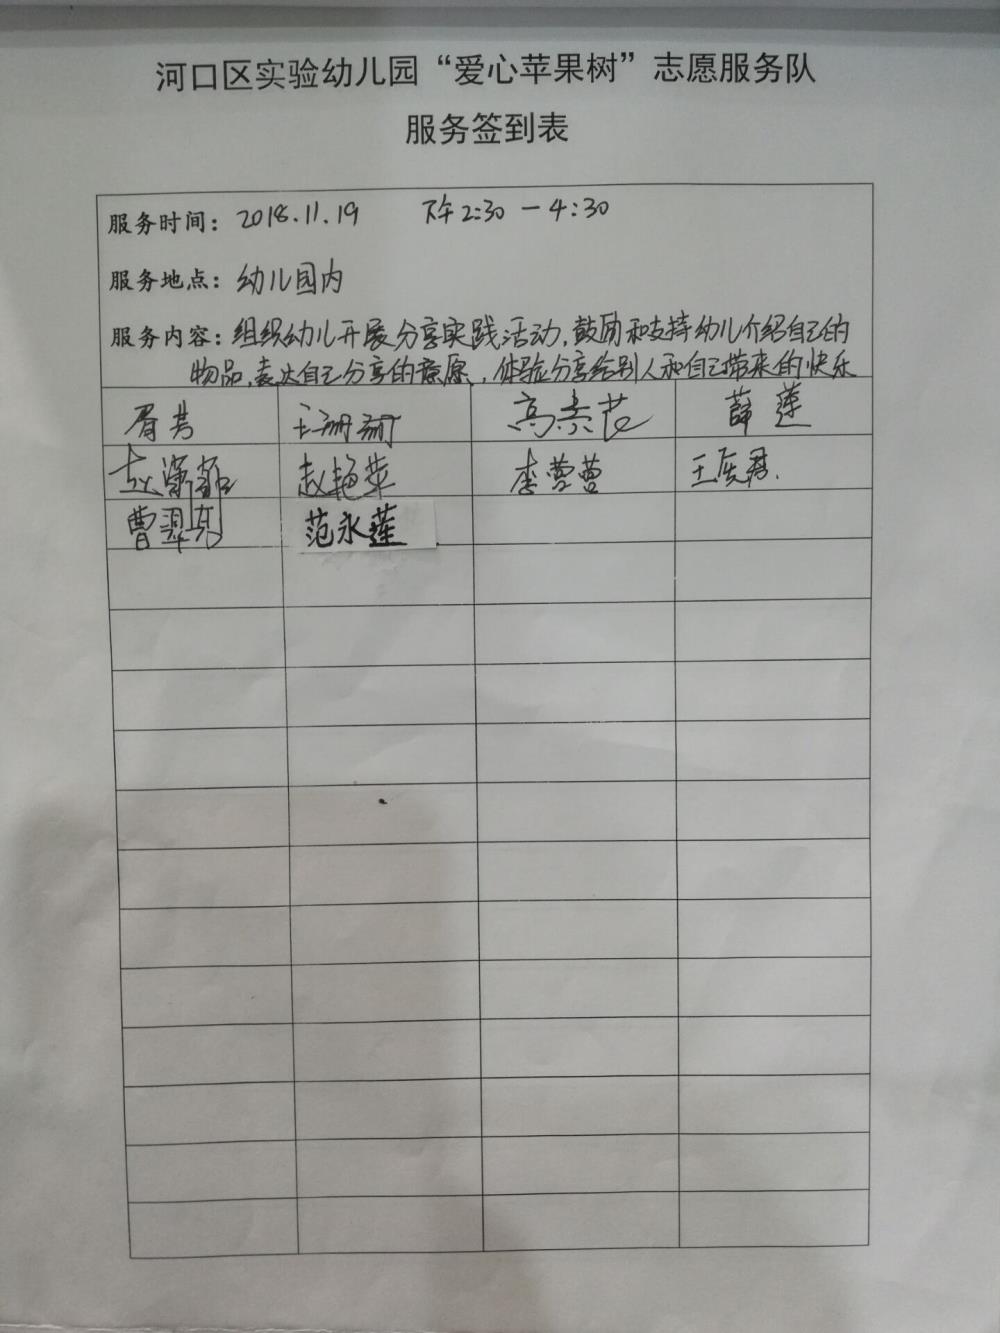 河口区实验幼儿园“爱心苹果树”志愿服务队
服务签到表
服务时间：2018.11.19 下午2:30－4:30
服务地点：幼儿园内
服务内容：组织幼儿开展分享实践活动，鼓励和支持幼儿介绍自己的
物品，表达自己分享的意愿，体验分享给别人和自己带来的快乐
胥芸 王珊珊 高素花 薛莲
赵 赵艳萍 李营营 王 君.
曹翠真 范永莲